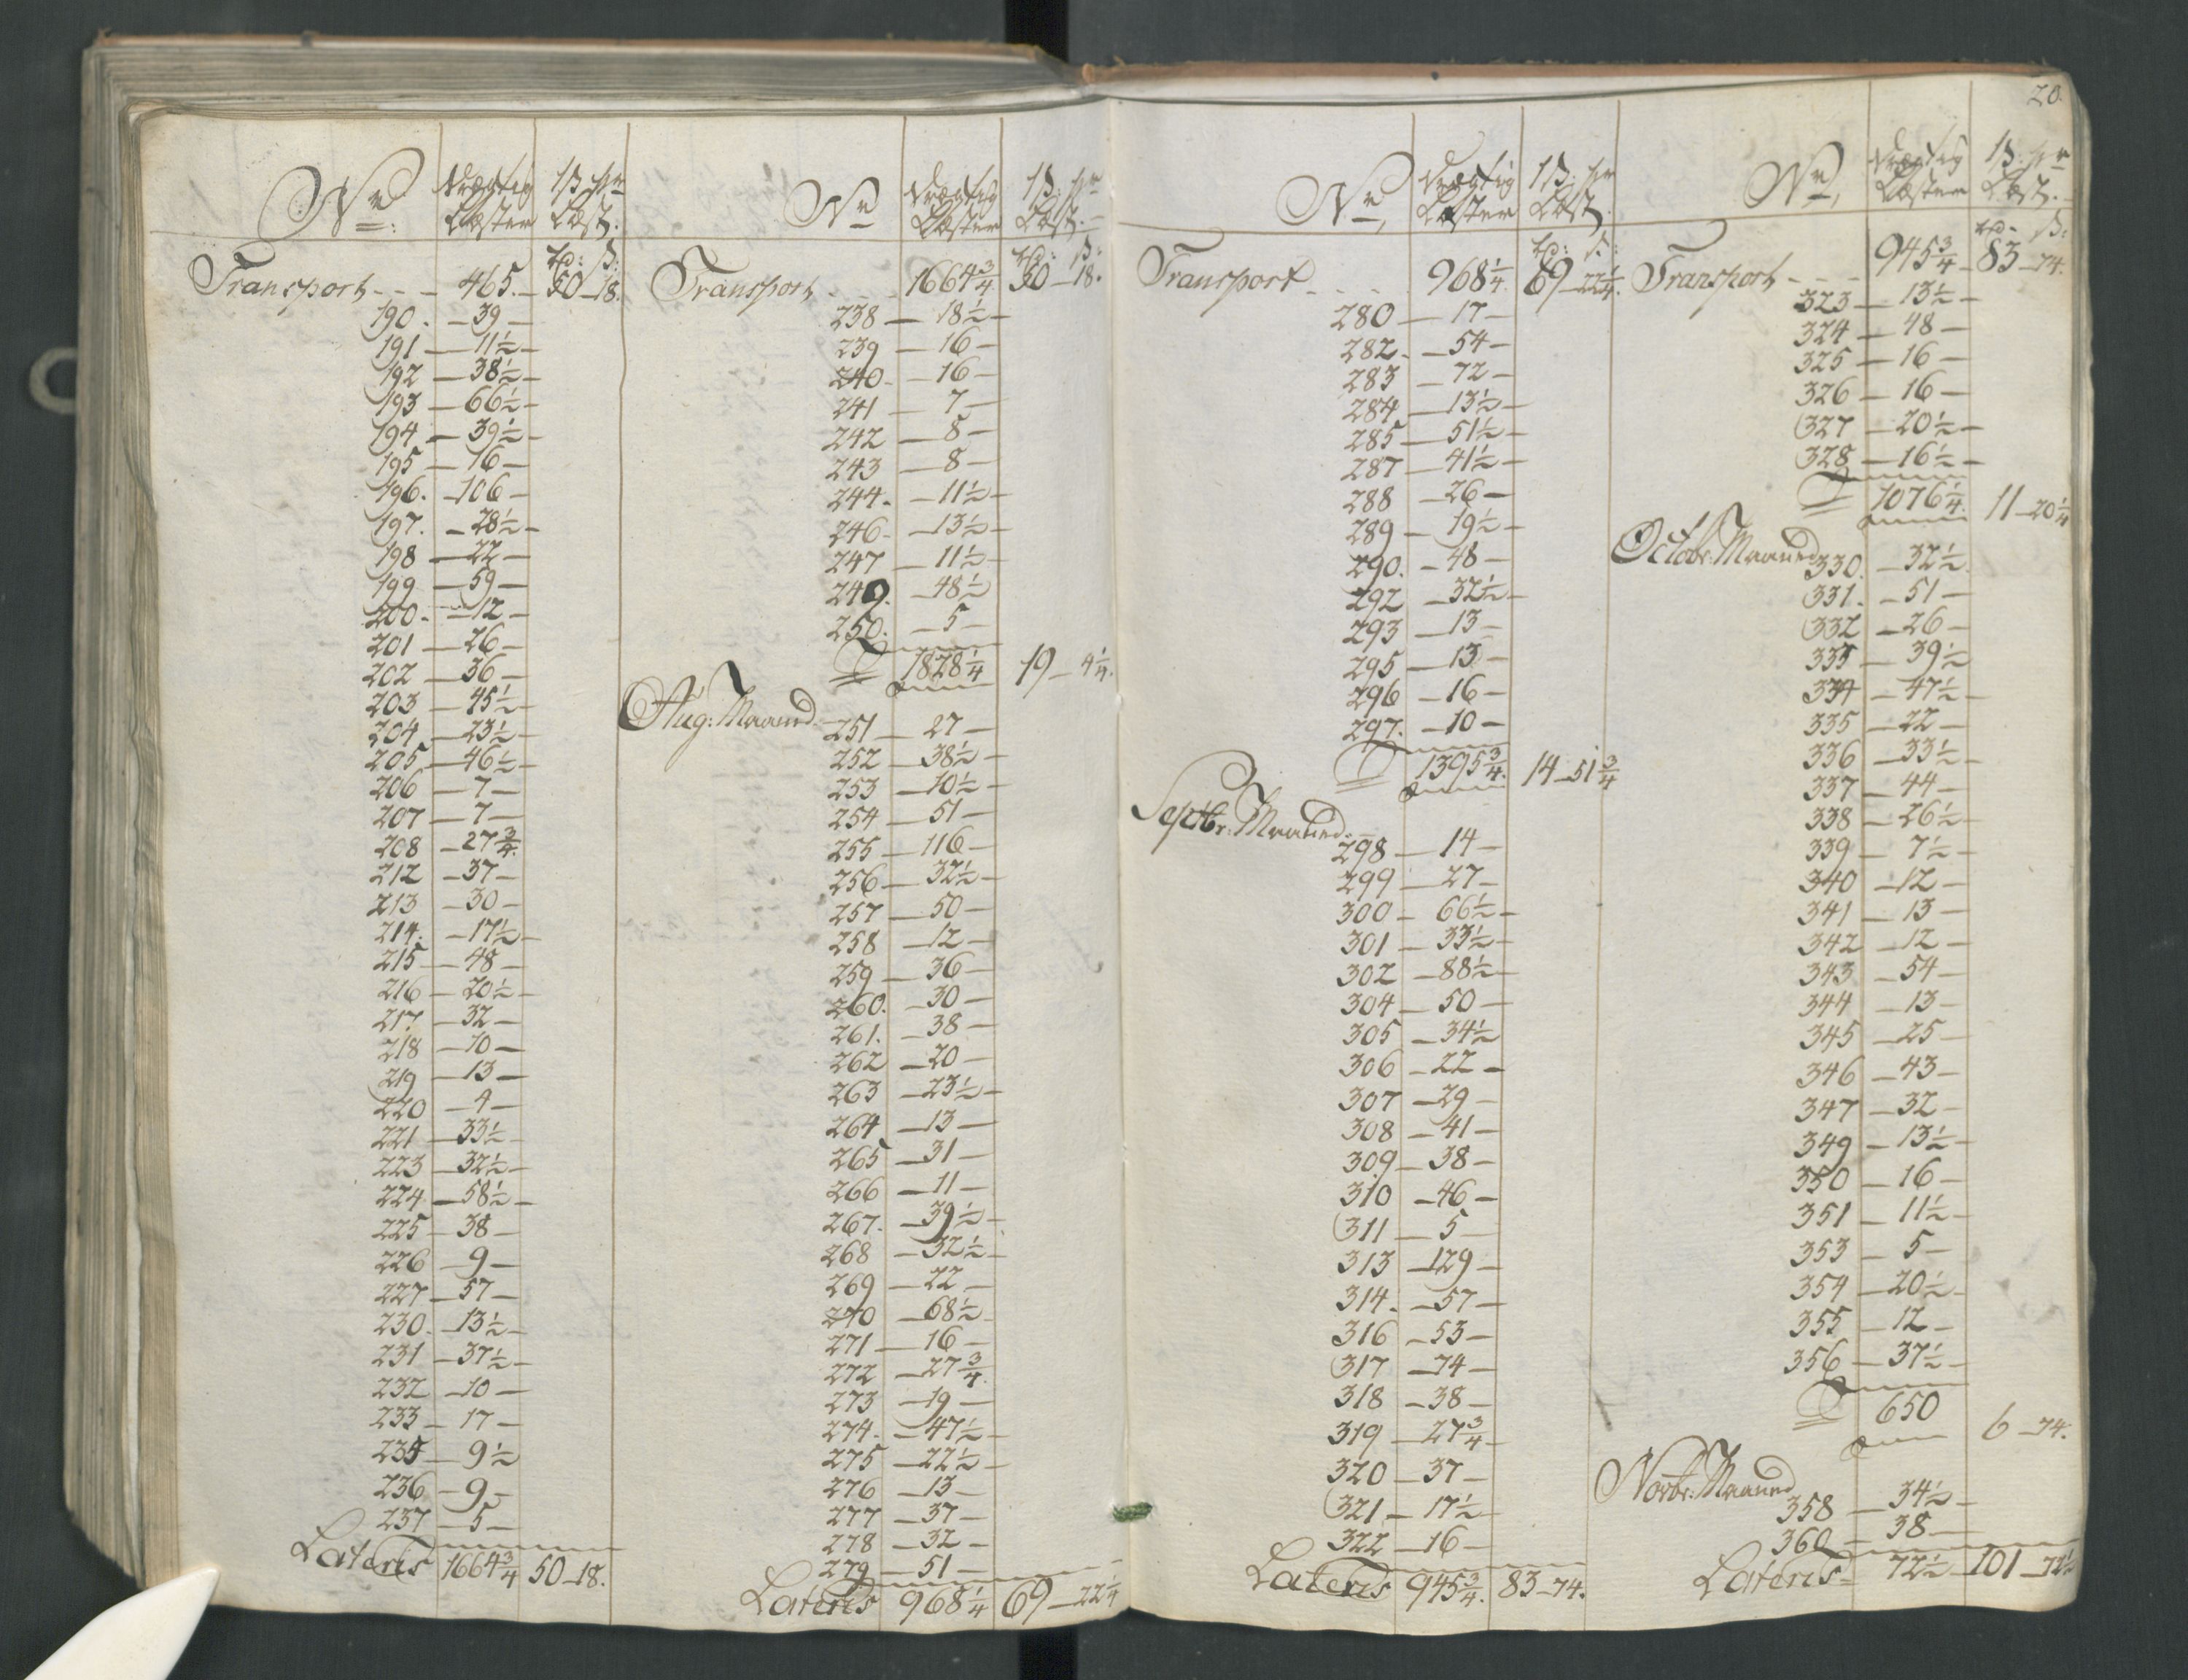 20.
No: drægtig Læster 1 ß: pr Læst.
rd: ß:
Transport - - - 465. 50 - 18.
190. - 39 -
191 - 11½ -
192 - 38½ -
193 - 66½ -
194 - 39½ -
195 - 16 -
196. - 106 -
197. - 28½ -
198 - 22 -
199 - 59 -
200. - 12 -
201 - 26 -
202 - 36 -
203 - 45½ -
204 - 23½ -
205 - 46½ -
206 - 7 -
207 - 7 -
208 - 27¾
212 - 37 -
213 - 30 -
214. - 17½ -
215 - 48 -
216 - 20½ -
217 - 32 -
218 - 10 -
219 - 13 -
220 - 4 -
221 - 33½ -
223 - 32½ -
224 - 58½ -
225 - 38 -
226 - 9 -
227 - 57 -
230. - 13½ -
231 - 37½ -
232 - 10 -
233 - 17 -
235 - 9½
236 - 9 -
237 - 5 -
Lateris 1664¾ 50 - 18.
No drægtig Læster 1 ß: pr Læst.
rd: ß:
Transport - - - 1664¾ 50 - 18.
238 - 18½ -
239 - 16 -
240. - 16 -
241 - 7 -
242 - 8 -
243 - 8 -
244. - 11½ -
246 - 13½ -
247 - 11½ -
249. - 48½
250. - 5 -
1828¼ 19 - 4¼.
Aug: Maaned
251 - 27 -
252 - 38½ -
253 - 10½ -
254 - 51 -
255 - 116 -
256 - 32½ -
257 - 50 -
258 - 12 -
259 - 36 -
260. - 30 -
261. - 38 -
262 - 20 -
263 - 23½ -
264 - 13 -
265 - 31 -
266 - 11 -
267. - 39½ -
268 - 32½ -
269 - 22 -
270 - 68½
271 - 16 -
272 - 27¾.
273 - 19 -
274. - 47½ -
275 - 22½ -
276 - 13 -
277 - 37 -
278 - 32 -
279 - 51 -
Lateris 968¼ 69 - 22¼
No, drægtig Læster 1 ß: pr Læst.
rd: ß:
Transport - - - 968¼ 69 - 22¼.
280 - 17 -
282. - 54 -
283 - 72 -
284 - 13½ -
285 - 51½ -
287 - 41½ -
288 - 26 -
289 - 19½ -
290. - 48 -
292 - 32½ -
293 - 13 -
295 - 13 -
296 - 16 -
297. - 10 -
1395¾. 14 - 51¾
Septbr: Maaned.
298 - 14 -
299 - 27 -
300 - 66½ -
301 - 33½ -
302 - 88½ -
304 - 50 -
305 - 34½
306 - 22 -
307 - 29 -
308 - 41 -
309 - 38 -
310 - 46 -
311 - 5 -
313 - 129 -
314. - 57 -
316 - 53 -
317 - 74 -
318 - 38 -
319 - 27¾ -
320 - 37 -
321 - 17½ -
322 - 16 -
Lateris 945¾. 83 - 74.
No, drægtig Læster 1 ß: pr Læst.
rd. ß:
Transport - - - 945¾ - 83 - 74.
323 - 13½ -
324 - 48 -
325 - 16 -
326 - 16 -
327 - 20½ -
328 - 16½ -
1076¼. 11 - 20¼
Octobr: Maaned
330. - 32½.
331. - 51 -
332 - 26 -
333 - 39½
334 - 47½ -
335 - 22 -
336 - 33½ -
337 - 44 -
338 - 26½ -
339 - 7½ -
340 - 12 -
341 - 13 -
342 - 12 -
343 - 54 -
344 - 13 -
345 - 25 -
346 - 43 -
347 - 32 -
349 - 13½ -
350 - 16 -
351 - 11½ -
353 - 5 -
354 - 20½ -
355 - 12 -
356 - 37½ -
650 6 - 74.
Novbr: Maaned
358 - 34½ -
360 - 38 -
Lateris - 72½ - 101 - 72½